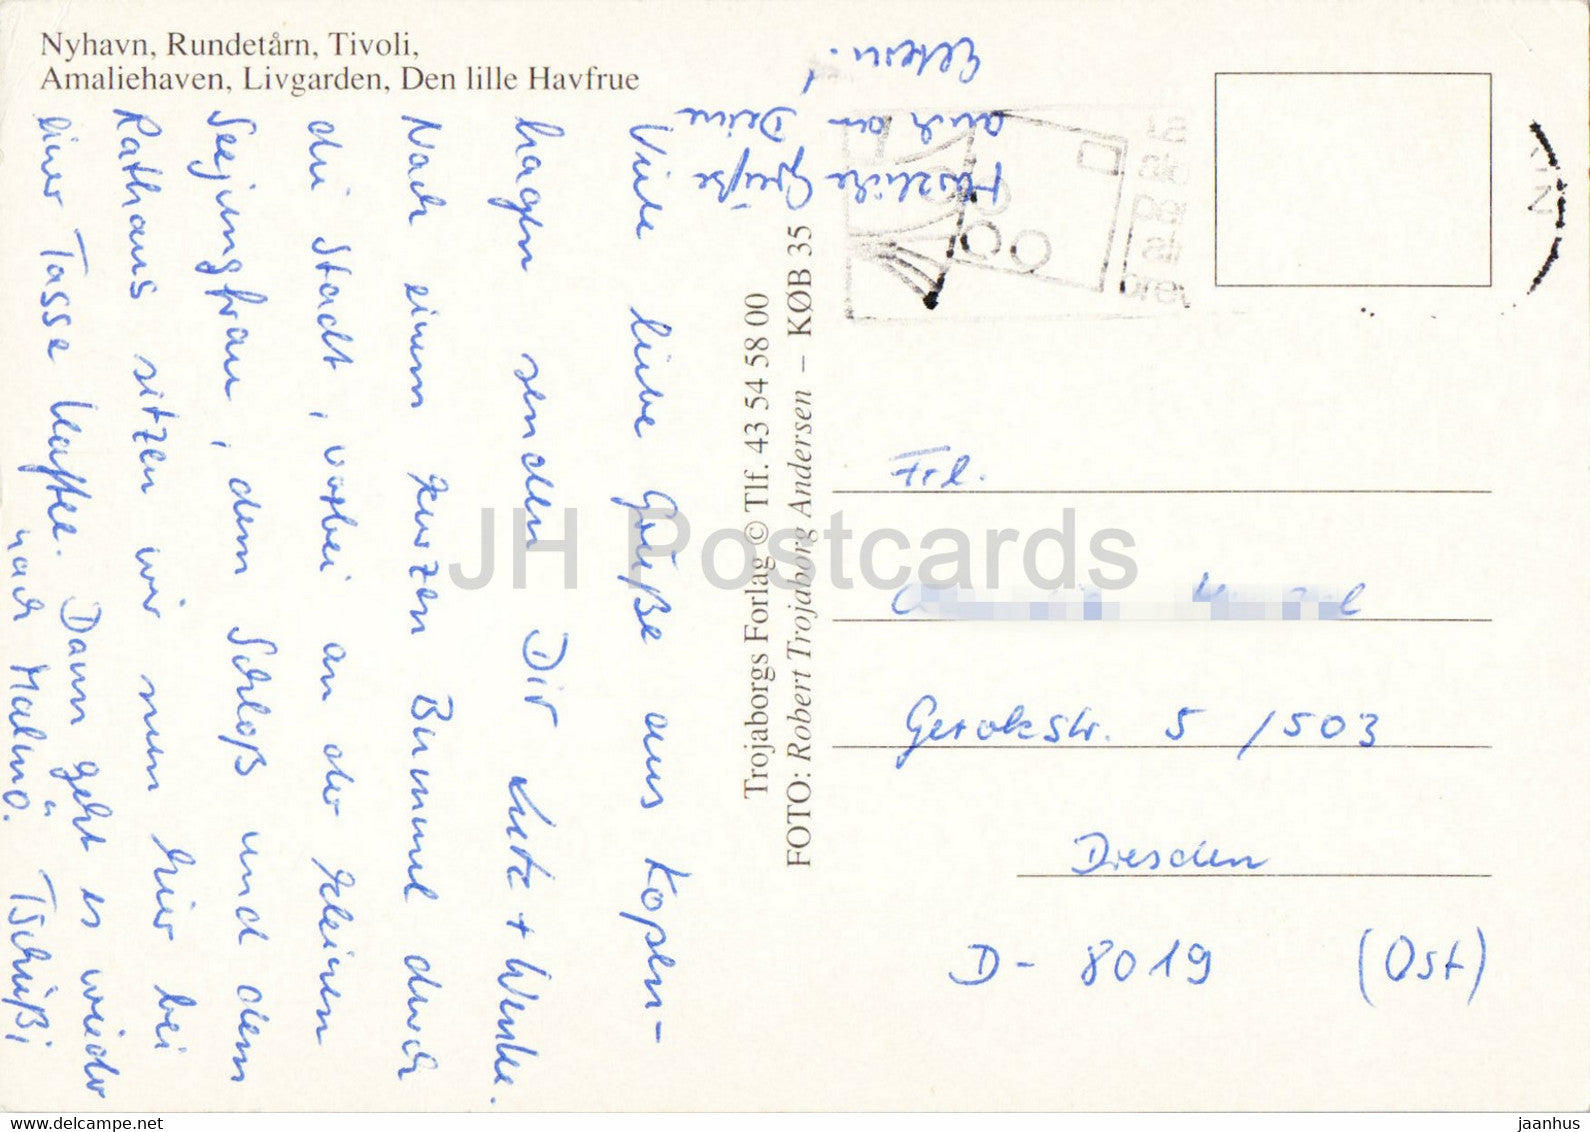 Nyhavn, Rundetårn, Tivoli,
Amaliehaven, Livgarden, Den lille Havfrue
Viele liebe Grüße aus Kopen-
hagen senden Dir Lutz + Wenke.
Nach einem kurzen Bummel durch
die Stadt, vorbei an der kleinen
Seejungfrau, dem Schloß und dem
Rathaus sitzen wir nun hier bei
einer Tasse Kaffee. Dann geht es wieder
nach Malmö. Tschüßi
Herzliche Grüße
auch an Deine
Eltern!
Trojaborgs Forlag © Tlf. 43 54 58 00
FOTO: Robert Trojaborg Andersen – KØB 35
Frl.
Gerokstr. 5 /503
Dresden
D- 8019 (Ost)
JH Postcards
hippostcard.com
jaanhus